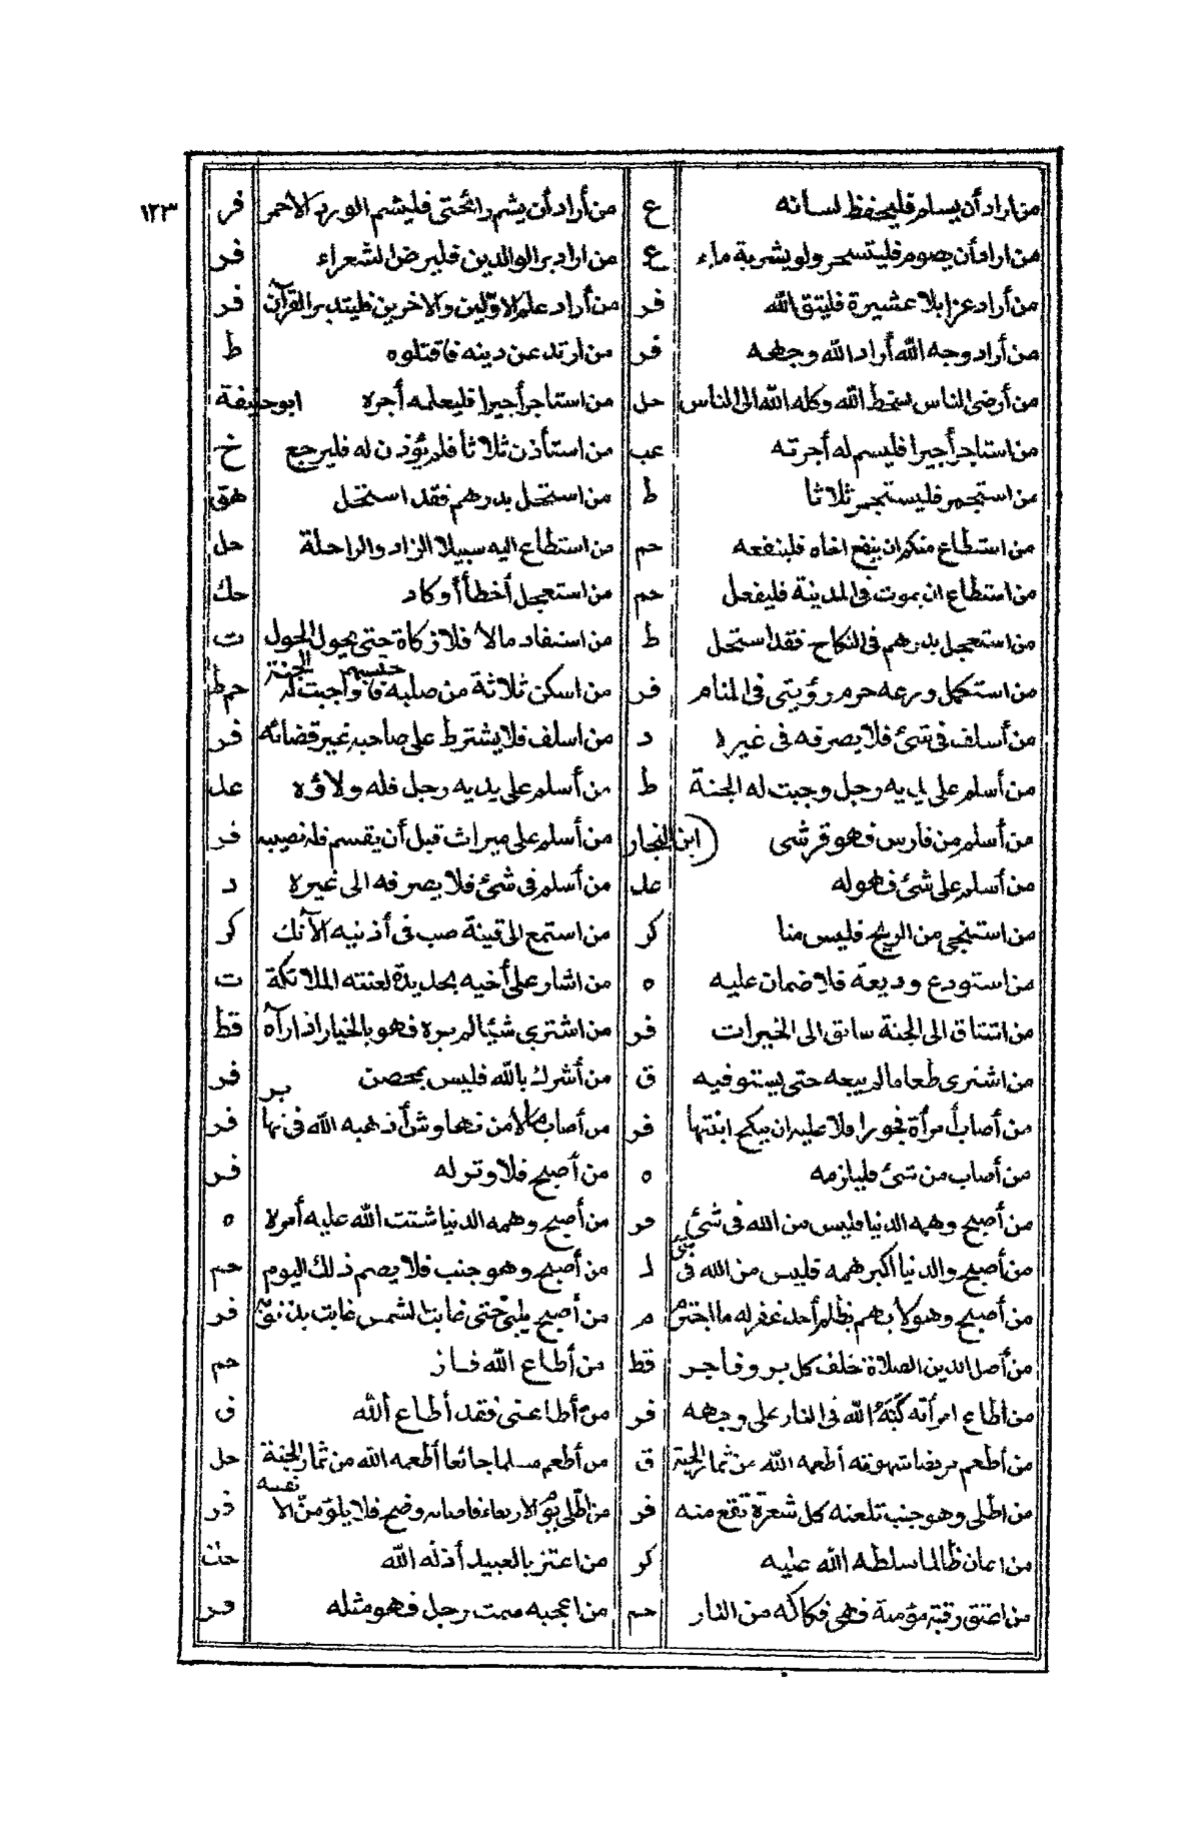 ١٢٣
من اراد أن يسلم فليحفظ لسانه ع من أراد أن يشم رائحتى فليشم الورد الأحمر فر
من اراد أن يصوم فليتسحر ولو بشربة ماء ع من اراد بر الوالدين فليرض الشعراء فر
من أراد عزا بلا عشيرة فليتق الله فر من أراد علم الاوّلين والاخرين فليتدبر القرآن فر
من أراد وجه الله أراد الله وجهه فر من ارتد عن دينه فاقتلوه ط
من أرضى الناس بسخط الله وكله الله الى الناس حل من استاجر أجيرا فليعلمه أجره ابو حنيفة
من استاجر أجيرا فليسم له أجرته عب من استأذن ثلاثا فلم يؤذن له فليرجع خ
من استجمر فليستجمر ثلاثا ط من استحل بدرهم فقد استحل هق
من استطاع منكم ان ينفع اخاه فلينفعه حم من استطاع اليه سبيلا الزاد والراحلة حل
من استطاع ان يموت فى المدينة فليفعل حم من استعجل أخطأ أو كاد حك
من استعجل بدرهم فى النكاح فقد استحل ط من استفاد مالا فلا زكاة حتى يحول الحول ت
من استكمل ورعه حرم رؤيتى فى المنام فر من اسكن ثلاثة من صلبه فاحتسبهم وجبت له الجنة حم ط
من أسلف فى شئ فلا يصرفه فى غيره د من اسلف فلا يشترط على صاحبه غير قضائه فر
من أسلم على يديه رجل وجبت له الجنة ط من أسلم على يديه رجل فله ولاؤه عد
من أسلم من فارس فهو قرشى (ابن النجار من أسلم على ميراث قبل أن يقسم فله نصيبه فر
من أسلم على شئ فهو له عد من أسلم فى شئ فلا يصرفه الى غيره د
من استنجى من الريح فليس منا كر من استمع الى قينة صب فى أذنيه الآنك كر
من استودع وديعة فلا ضمان عليه ه من اشار على أخيه بحديدة لعنته الملائكة ت
من اشتاق الى الجنة سابق الى الخيرات فر من اشترى شيئا لم يره فهو بالخيار اذا رآه قط
من اشترى طعاما لم يبعه حتى يستوفيه ق من أشرك بالله فليس بمحصن فر
من أصاب امرأة فجورا فلا عليه ان ينكح ابنتها فر من أصاب مالا من نهاوش أذهبه الله فى نهابر فر
من أصاب من شئ فليلزمه ه من أصبح فلا وتر له فر
من أصبح وهمه الدنيا فليس من الله فى شئ فر من أصبح وهمه الدنيا شتت الله عليه أمره ه
من أصبح والدنيا أكبر همه فليس من الله فى شئ من أصبح وهو جنب فلا يصم ذلك اليوم حم
من أصبح وهو لا يهم بظلم أحد غفر له ما اجترم م من أصبح يلبى حتى غابت الشمس غابت بذنوبه فر
من أصل الدين الصلاة خلف كل بر وفاجر قط من أطاع الله فاز حم
من أطاع امرأته كبّه الله فى النار على وجهه فر من أطاعنى فقد أطاع الله ق
من أطعم مريضا شهوته أطعمه الله من ثمار الجنة ق من أطعم مسلما جائعا أطعمه الله من ثمار الجنة حل
من اطلى وهو جنب تلعنه كل شعرة تقع منه فر من اطلى يوم الاربعاء فاصابه وضح فلا يلومنّ الا نفسه فر
من اعان ظالما سلطه الله عليه كر من اعتز بالعبيد أذله الله
من اعتق رقبة مؤمنة فهى فكاكه من النار حم من اعجبه سمت رجل فهو مثله فر